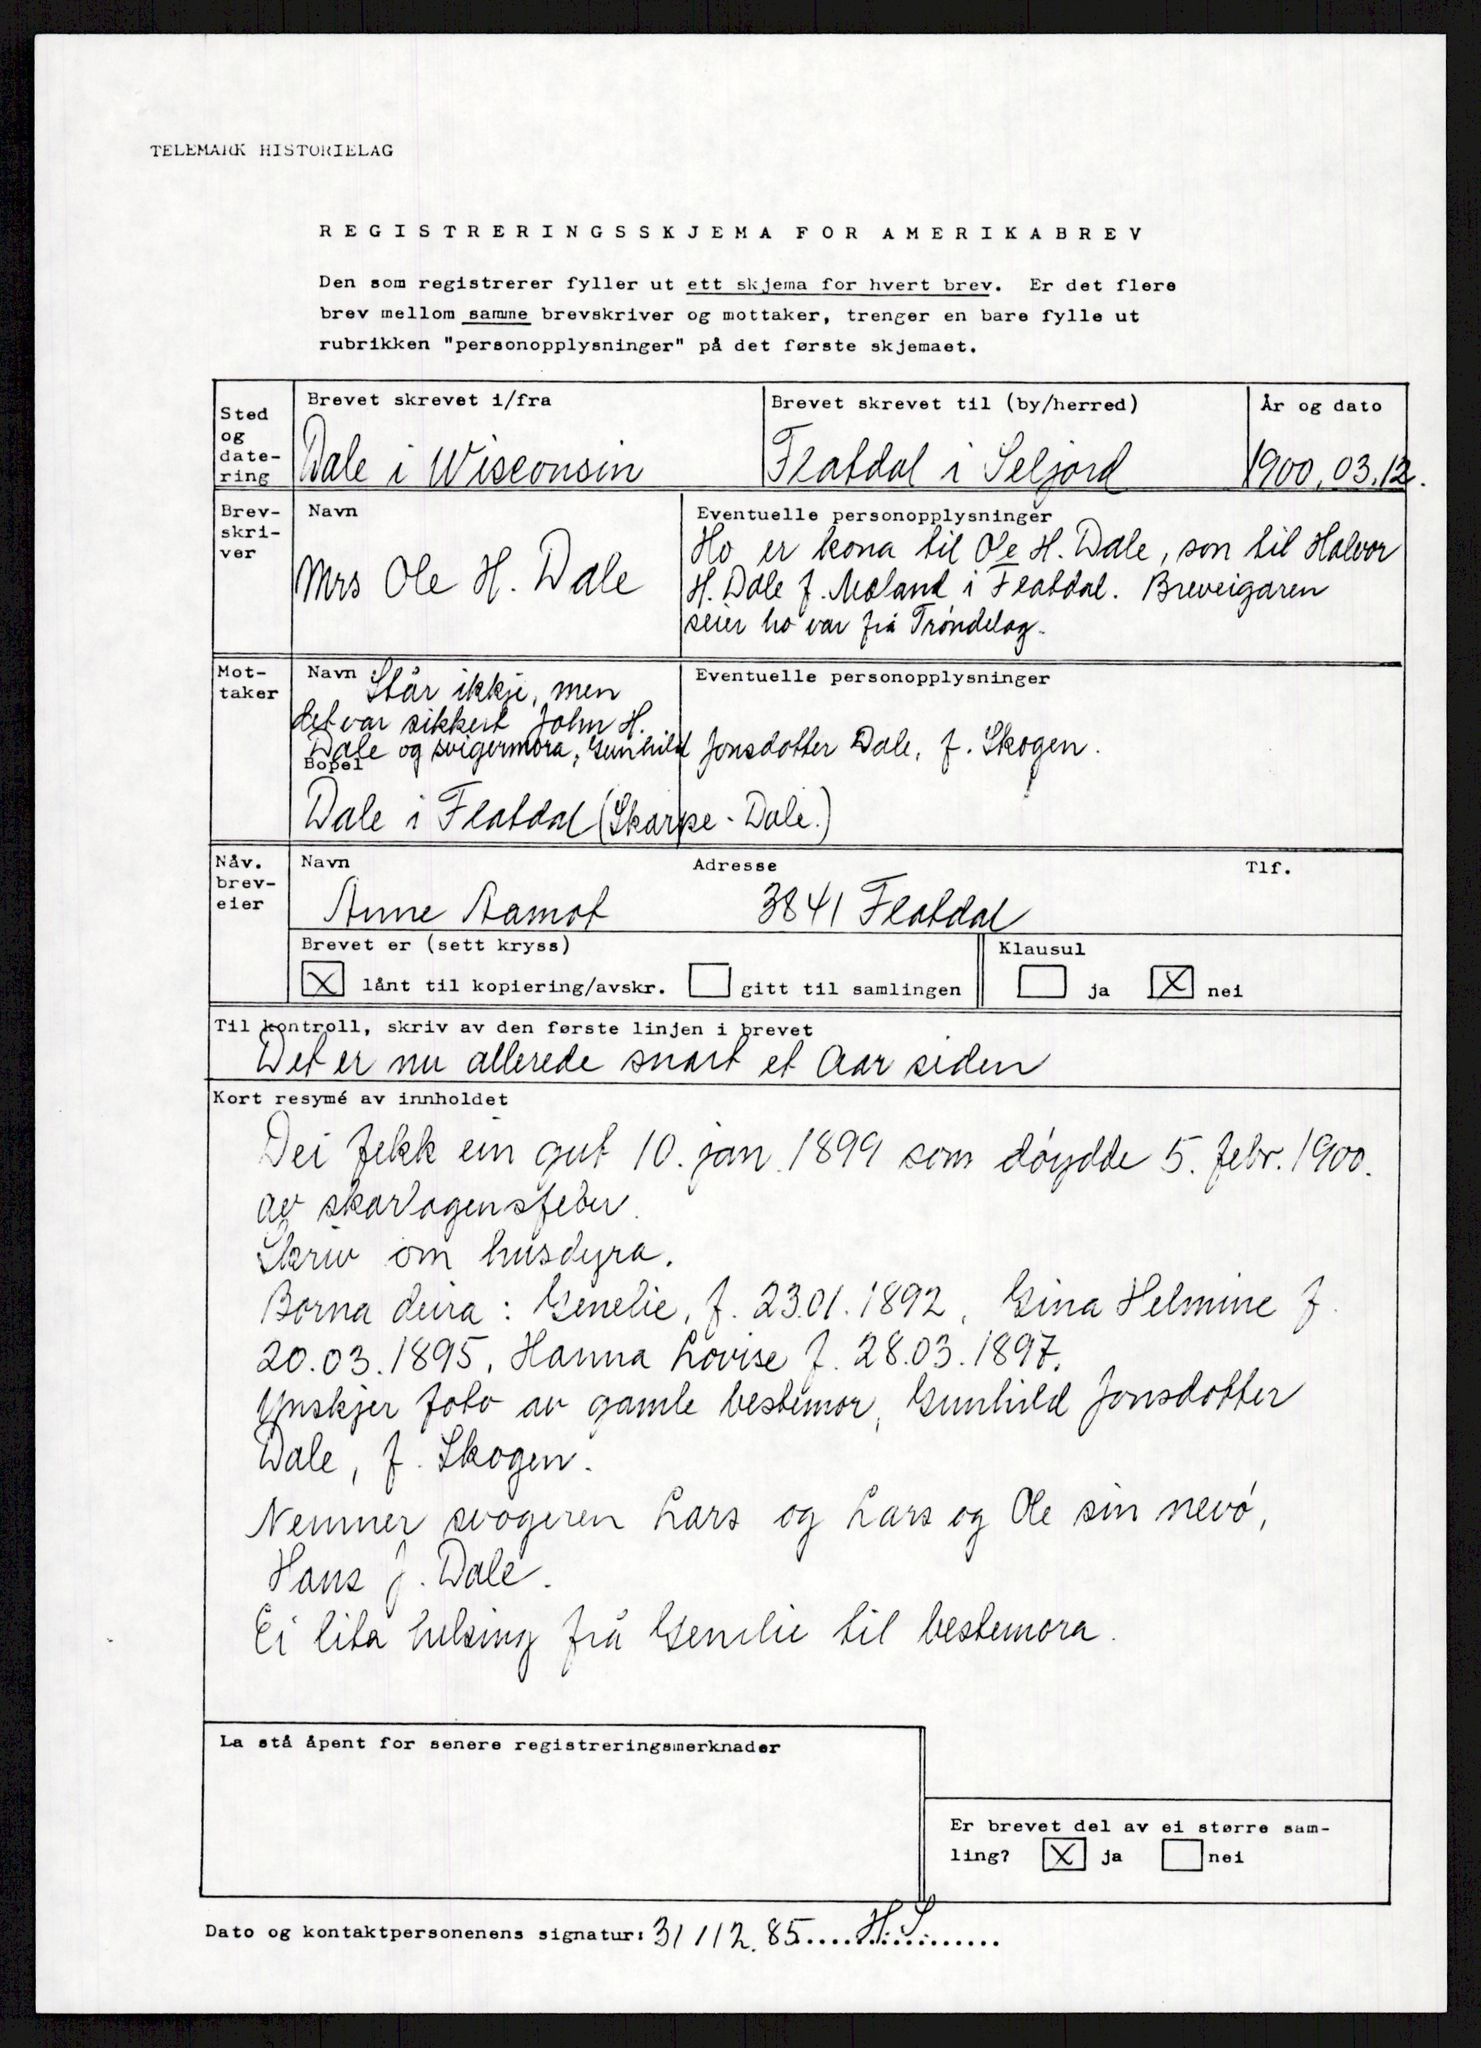 TELEMARK HISTORIELAG
REGISTRERINGSSKJEMA FOR AMERIKABREV
Den som registrerer fyller ut ett skjema for hvert brev. Er det flere
brev mellom samme brevskriver og mottaker, trenger en bare fylle ut
rubrikken "personopplysninger" på det første skjemaet.
Sted
og
date-
ring
Brevet skrevet i/fra
Dale i Wisconsin
Brevet skrevet til (by/herred)
Flatdal i Seljord
År og dato
1900.03.12.
Brev-
skri-
ver
Navn
Mrs Ole H. Dale
Eventuelle personopplysninger
Ho er kona til Ole H. Dale, son til Halvor
H. Dale f. Moland i Flatdal. Breveigaren
seier ho var frå Trøndelag.
Mot-
taker
Navn
Står ikkje, men
det var sikkert John H.
Dale og svigermora, Gunhild Jonsdotter Dale, f. Skogen.
Eventuelle personopplysninger
Bopel
Dale i Flatdal (Skarpe-Dale.)
Nåv.
brev-
eier
Navn
Anne Aamot
Adresse
3841 Flatdal
Tlf.
Brevet er (sett kryss)
X lånt til kopiering/avskr. gitt til samlingen
Klausul
ja X nei
Til kontroll, skriv av den første linjen i brevet
Det er nu allerede snart et Aar siden
Kort resymé av innholdet
Dei fekk ein gut 10. jan. 1899 som døydde 5. febr. 1900.
av skarlagensfeber.
Skriv om husdyra.
Borna deira: Genelie, f. 23.01.1892, Gina Helmine f.
20.03.1895, Hanna Lovise f. 28.03.1897.
Ynskjer foto av gamle bestemor, Gunhild Jonsdotter
Dale, f. Skogen.
Nemner svogeren Lars og Lars og Ole sin nevø,
Hans J. Dale.
Ei lita helsing frå Genelie til bestemora.
La stå åpent for senere registreringsmerknader
Er brevet del av ei større sam-
ling? X ja nei
Dato og kontaktpersonenens signatur: 31/12.85.....H.S.......